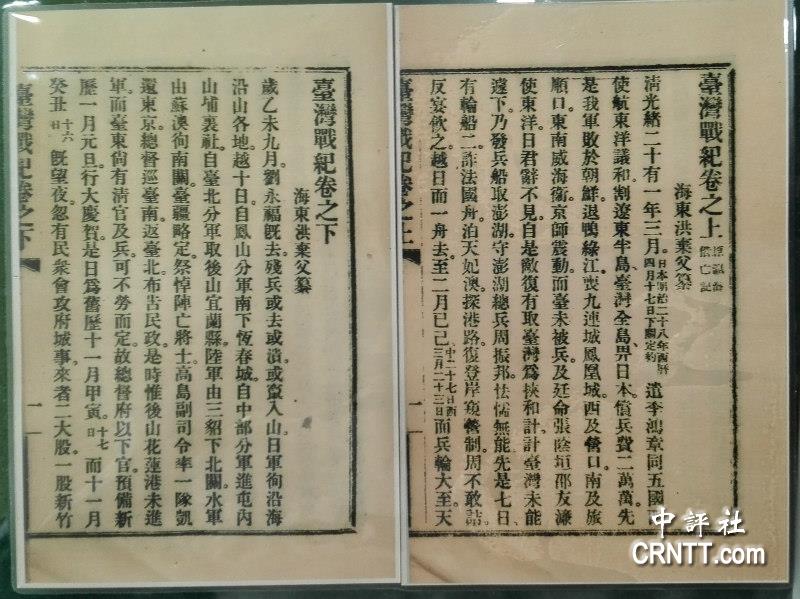 臺灣戰紀卷之上 原瀛海偕亡記
海東洪棄父纂
清光緒二十有一年三月。日本明治二十八年西曆四月十七日下關定約遣李鴻章同五國
使航東洋議和。割遼東半島、臺灣全島、畀日本。償兵費二萬萬。先
是我軍敗於朝鮮。退鴨綠江。喪九連城鳳凰城。西及營口。南及旅
順口。東南威海衞。京師震動。而臺未被兵。及廷命張蔭垣邵友濂
使東洋。日君辭不見。自是敵復有取臺灣爲挾和計。計臺灣未能
遽下。乃發兵船取澎湖。守澎湖總兵周振邦怯懦無能。先是七日、
有輪船二。詐法國舟。泊天妃澳。探港路。復登岸窺營制。周不敢詰。
反宴飲之。越日而一舟去。至二月巳己。中二十七日西三月二十三日而兵輪大至。天
臺灣戰紀卷之上
一
臺灣戰紀卷之下
海東洪棄父纂
歲乙未九月。劉永福旣去。殘兵或去或潰或竄入山。日軍徇沿海
沿山各地。越十日。自鳳山分軍南下恆春城。自中部分軍進屯內
山埔裏社。自臺北分軍取後山宜蘭縣。陸軍由三貂下北關。水軍
由蘇澳徇南關。臺疆略定。祭悼陣亡將士。高島副司令率一隊凱
還東京。總督巡臺南。返臺北。布告民政。是時惟後山花蓮港未進
軍。而臺東尙有淸官及兵。可不勞而定。故總督府以下官。預備新
曆一月元旦。行大慶賀。是日爲舊曆十一月甲寅。十七日而十一月
癸丑十六日旣望夜。忽有民衆會攻府城事。來者二大股。一股新竹
臺灣戰紀卷之下
一
中評社
CRNTT.com